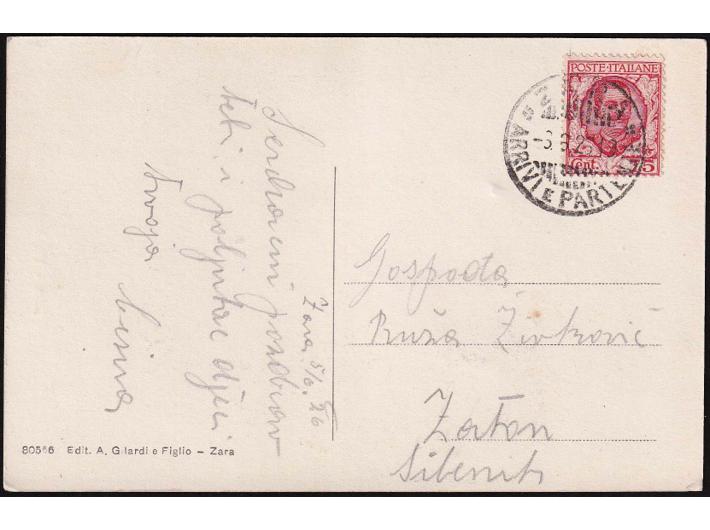 Zara, 5/6 26
Srdačni pozdrav
teti i poljubac djeci
tvoja
POSTE·ITALIANE
Cent.
ARRIVI E PARTENZE
Gospođa
Ruža Živković
Zaton
Šibenik
80566 Edit. A. Gilardi e Figlio – Zara